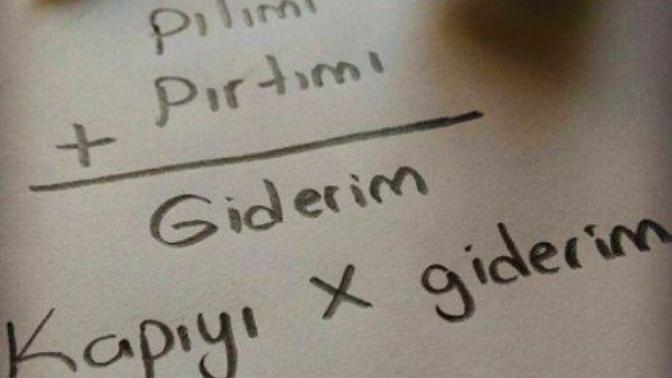 pılımı
+ pırtımı
Giderim
Kapıyı x giderim